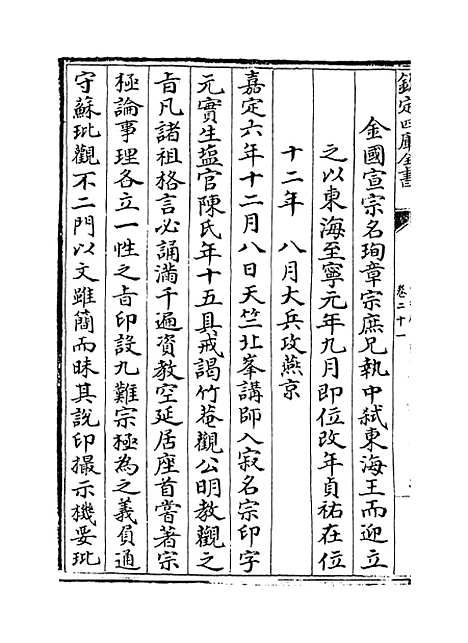 欽定四庫全書
卷二十一
金國宣宗名珣章宗庶兄執中弒東海王而迎立
之以東海至寧元年九月即位改年貞祐在位
十二年　八月大兵攻燕京
嘉定六年十二月八日天竺北峯講師入寂名宗印字
元實生盬官陳氏年十五具戒謁竹菴觀公明教觀之
㫖凡諸祖格言必誦滿千遍資教空延居座首嘗著宗
極論事理各立一性之㫖印設九難宗極為之義負通
守蘇玭觀不二門以文雖簡而昧其說印撮示機要玭